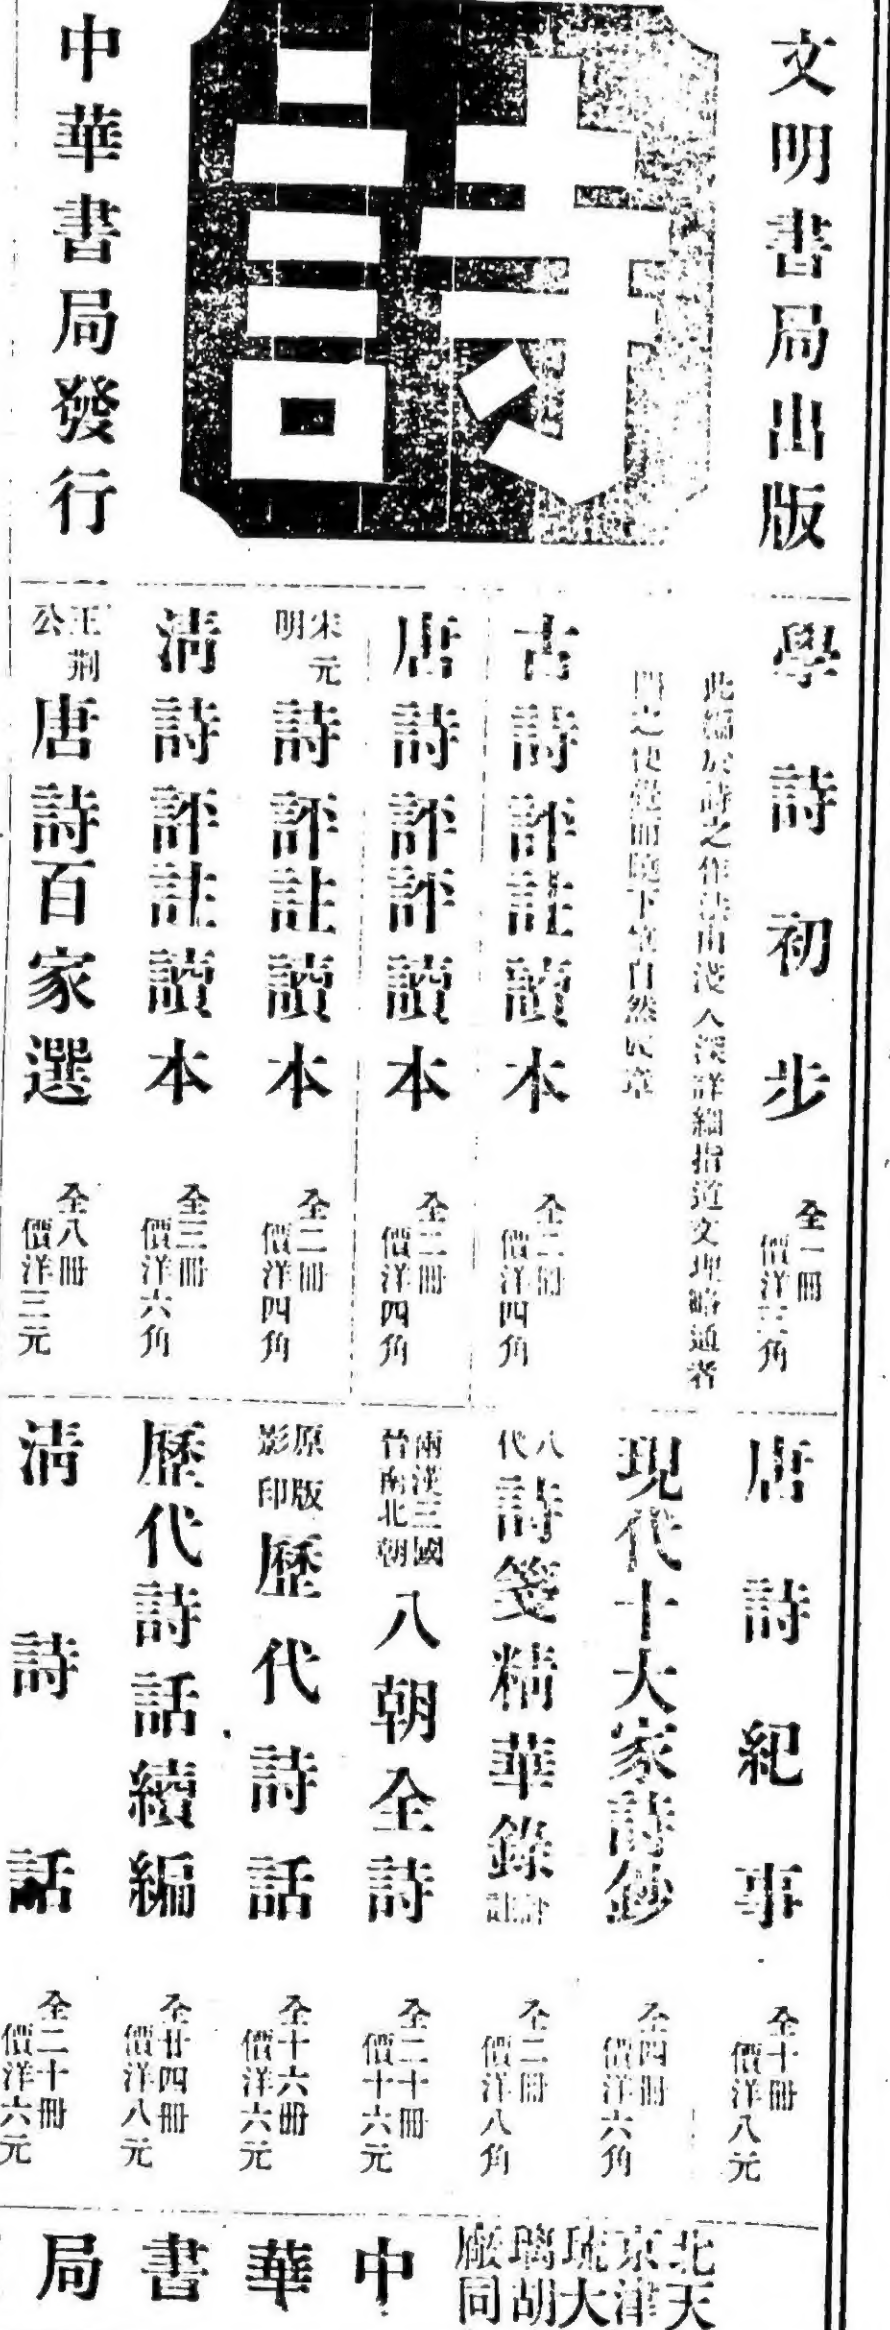 文明書局出版
詩
中華書局發行
學詩初步
全一冊
價洋三角
此編於詩之作法由淺入深詳細指道文理略通者
閱之便能而曉下筆自然成章
古詩評註讀本
全二冊
價洋四角
唐詩評評讀本
全二冊
價洋四角
宋元明
詩評註讀本
全二冊
價洋四角
清詩評註讀本
全三冊
價洋六角
王荆公
唐詩百家選
全八冊
價洋三元
唐詩紀事
全十冊
價洋八元
現代十大家詩鈔
全四冊
價洋六角
八代
詩箋精華錄
評註
全二冊
價洋八角
兩漢三國
晉南北朝
八朝全詩
全二十冊
價十六元
原版
影印
歷代詩話
全十六冊
價洋六元
歷代詩話續編
全廿四冊
價洋八元
清詩話
全二十冊
價洋六元
北京琉璃廠
天津大胡同
中華書局